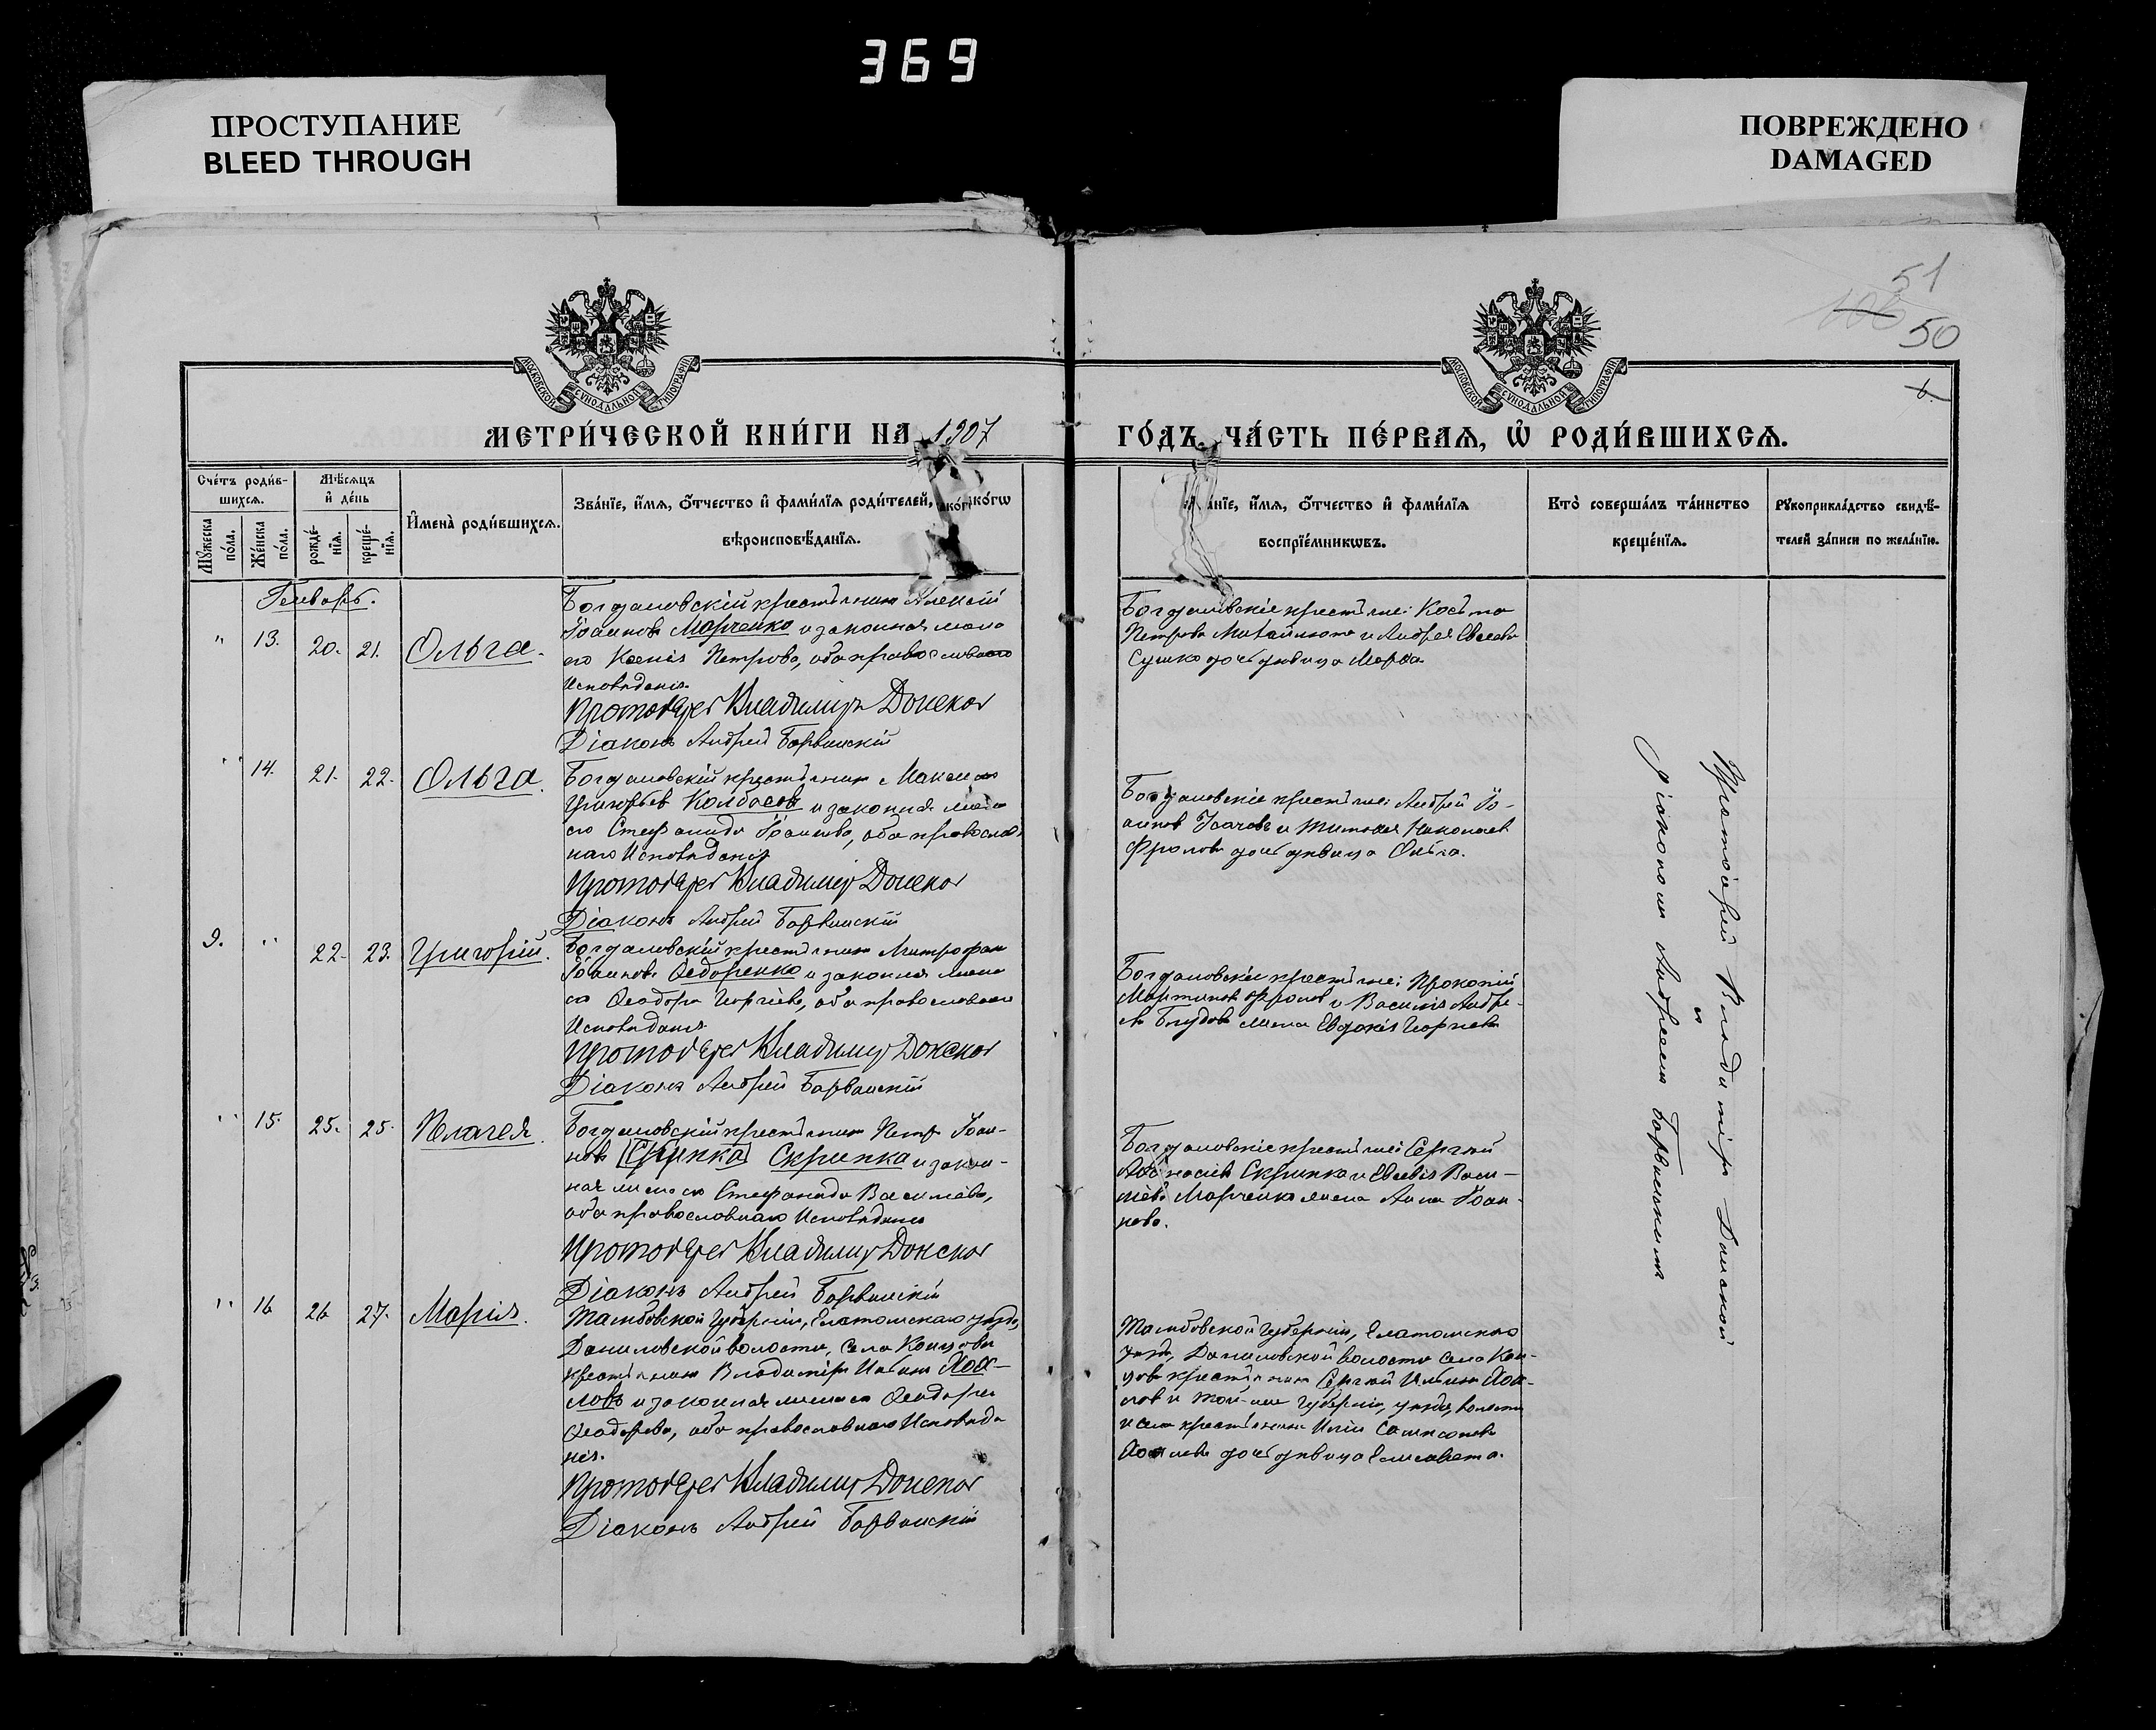 369
ПРОСТУПАНИЕ
BLEED THROUGH
ПОВРЕЖДЕНО
DAMAGED
51
50
МОСКОВСКОЙ СѴНОДАЛЬНОЙ ТИПОГРАФІИ
МОСКОВСКОЙ СѴНОДАЛЬНОЙ ТИПОГРАФІИ
МЕТРИ́ЧЕСКОЙ КНИ́ГИ НА 1907
ГО́ДЪ, ЧА́СТЬ ПЕ́РВАЯ, Ѡ҆ РОДИ́ВШИХСЯ.
Сче́тъ роди́в-
шихся.
Мѣ́сяцъ
и҆ де́нь
Му́жеска
по́ла.
Же́нска
по́ла.
рожде́-
нїя.
креще́-
нїя.
И҆мена̀ роди́вшихся.
Зва́нїе, и҆́мя, ѻ҆́тчество и҆ фами́лїя роди́телей,
вѣроисповѣ́данїя.
и҆́мя, ѻ҆́тчество и҆ фами́лїя
воспрїе́мникѡвъ.
Кто̀ соверша́лъ та́инство
креще́нїя.
Рꙋкоприкла́дство свидѣ́-
телей за́писи по жела́нїю.
Генварь.
" 13. 20. 21. Ольга.
Богдановскій крестьянинъ Алексій
Іоанновъ Марченко и законная жена
его Ксенія Петрова, оба православнаго
Исповѣданія.
Протоіерей Владиміръ Донской
Діаконъ Андрей Барвинскій
Богдановскіе крестьяне: Косьма
Петровъ и Андрея
Сушко дочь дѣвица Марѳа.
" 14. 21. 22. Ольга.
Богдановскій крестьянинъ Максимъ
Григорьевъ Колбасовъ и законная жена
его Стефанида Іоаннова, оба православ-
наго Исповѣданія
Протоіерей Владиміръ Донской
Діаконъ Андрей Барвинскій
Богдановскіе крестьяне: Андрей Іо-
анновъ и Николаев
Фролова дочь дѣвица Ольга.
9. " 22. 23. Григорій.
Богдановскій крестьянинъ Митрофанъ
Іоанновъ Ѳедоренко и законная жена
его Ѳеодора Георгіева, оба православнаго
Исповѣданія
Протоіерей Владиміръ Донской
Діаконъ Андрей Барвинскій
Богдановскіе крестьяне: Прокопій
Мартиновъ Фролов и Василія Андре-
ева жена Евдокія Георгіева
" 15. 25. 25. Пелагея.
Богдановскій крестьянинъ Петръ Іоан-
новъ (Скрипка) Скрипка и закон-
ная жена его Стефанида Васильева,
оба православнаго Исповѣданія
Протоіерей Владиміръ Донской
Діаконъ Андрей Барвинскій
Богдановскіе крестьяне: Сергій
Аѳанасіевъ Скрипка и Васи-
ліева Марченко жена Анна Іоан-
нова.
" 16 26 27. Марія.
Тамбовской Губерніи, Елатомскаго уѣзда,
Даниловской волости, Села
крестьянинъ Владиміръ
и законная жена его Ѳеодора
Ѳеодорова, оба православнаго Исповѣда
нія.
Протоіерей Владиміръ Донской
Діаконъ Андрей Барвинскій
Тамбовской Губерніи, Елатомскаго
уѣзда, Даниловской волости села
крестьянинъ Сергій
и той-же Губерніи, уѣзда, волости
и села крестьянина
дочь дѣвица Елисавета.
Протоіерей Владиміръ Донской
и
діаконом Андреем Барвинским